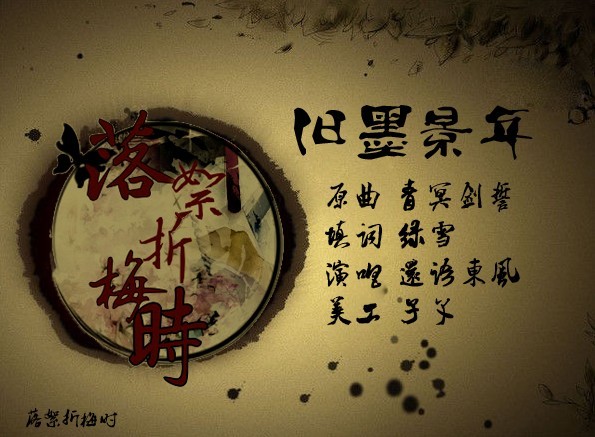 落絮折梅時
旧墨景年
原曲 青冥剑誓
填词 绿雪
演唱 遠語東風
美工 子
落絮折梅时